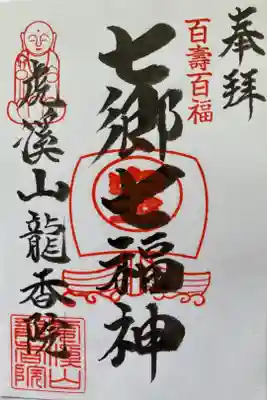 奉拝
百壽百福
七郷七福神
虎溪山龍香院